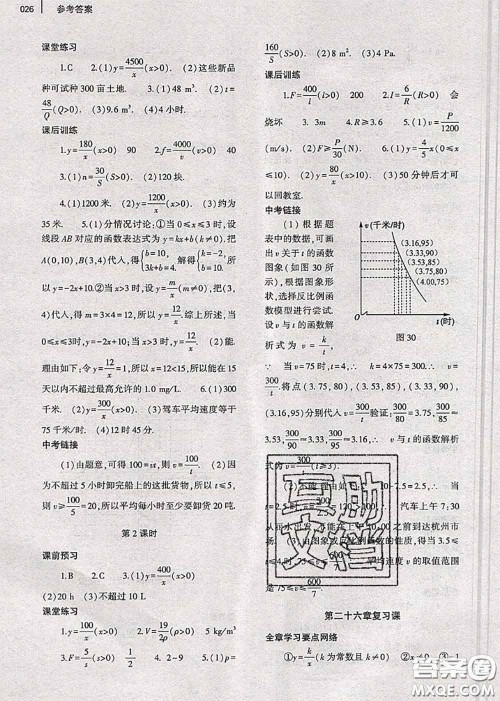 026 参考答案
课堂练习
1.C 2.(1)y=4500/x(x>0). (2)这些新品
种可试种 300 亩土地. 3.(1)48 m³. (2)t=
48/Q(Q>0). (3)9.6 m³. (4)4 小时.
课后训练
1.y=180/x(x>0) 90 2.f=4000/v(v>0) 40
3.(1)n=30/S(S>0). (2)120 块.
4.(1)1200 米. (2)y=1200/x(x>0). (3)约为
35 米. 5.(1)分情况讨论;①当 0≤x≤3 时,设
线段 AB 对应的函数表达式为 y=kx+b(k≠0).把
A(0,10),B(3,4)代入,得{b=10, 3k+b=4. 解得{k=-2, b=10. 所
以 y=-2x+10.②当 x>3 时,设 y=m/x(m≠0),把(3,
4)代入,得 m=3×4=12,所以 y=12/x.综上所述,当
0≤x≤3时,y=-2x+10;当 x>3时,y=12/x. (2)能.
理由如下:令 y=12/x=1,则 x=12<15,所以能在 15
天以内不超过最高允许的 1.0 mg/L. 6.(1)300
千米. (2)y=300/x(x>0). (3)驾车平均速度等于
75 千米/时. (4)12 时 45 分.
中考链接
(1)由题意,可得 100=vt,则 v=100/t. (2)因
为不超过 5 小时卸完船上的这批货物,所以 t≤5,
则 v≥100/5=20,所以平均每小时至少要卸货 20 吨.
第 2 课时
课前预习
1.B 2.C 3.(1)y=400/x(x>0)
(2)20 h (3)不超过 10 L
课堂练习
1.y=100/x(x>0) V=19/ρ(ρ>0) 5 kg/m³
3.F=5/s(s>0) 1/2 4. 2-9 5.(1)p=
160/S(S>0). (2)8 m². (3)4 Pa.
课后训练
1.F=400/l(l>0) 200 2.I=6/R(R>0) 会
烧坏 3. 3m 4.R≥3.6 5.(1)v=P/1200
(m/s). (2)F≥P/30(N). 6.(1)y=4/5x(0≤x
≤10). (2)y=80/x(x>10). (3)50 分钟后才可
以回教室.
中考链接
(1)根据题
表中的数据,可画
出 v 关于 t 的函数
图象(如图 30 所
示).根据图象形状,
选择反比例函
数模型进行尝试.
设 v 与 t 的函数解
析式为 v=k/t,
v(千米/时)
(3.16,95)
(3.33,90)
(3.53,85)
(3.75,80)
(4.00,75)
O
t(时)
图 30
∵ 当 v=75 时,t=4,∴ k=4×75=300.∴ v=
300/t.将点(3.75,80),(3.53,85),(3.33,90),
(3.16,95)分别代入 v=300/t验证:300/80=3.75,300/85≈
3.53,300/90≈3.33,300/95≈3.16,∴ v 与 t 的函数解析
式为 v=300/t(t≥3).
(2)不能.理由如下:
10-7.5=2.5,
汽车上午 7:30
10:00 之前到达杭州市
场. (3)由图象或反比例函数的性质,得当 3.5≤
t≤4 时,75≤v≤600/7.
平均速度 v 的取值范
围是 75≤v≤600/7.
互助
文档
第二十六章复习课
全章学习要点网络
①y=k/x(k 为常数且 k≠0) ②x≠0 ③-1
答案圈
MXQE.COM